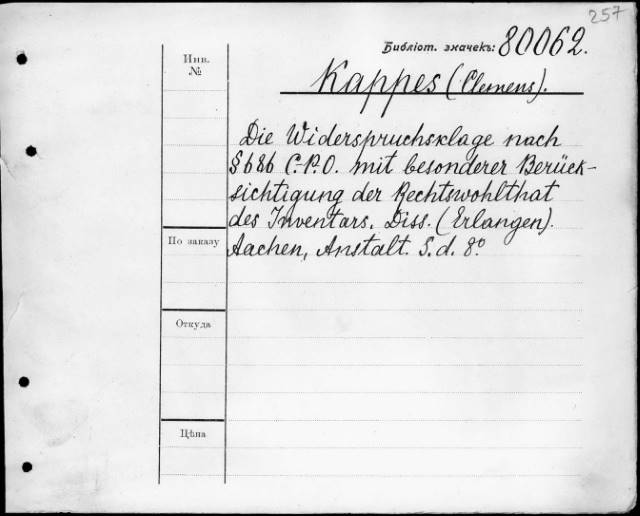 257
Библіот. значекъ: 80062.
Инв. №
Kappes (Clemens).
Die Widerspruchsklage nach
§ 686 C.-P.O. mit besonderer Berück-
sichtigung der Rechtswohlthat
des Inventars. Diss. (Erlangen).
По заказу
Aachen, Anstalt. S. d. 8º
Откуда
Цѣна